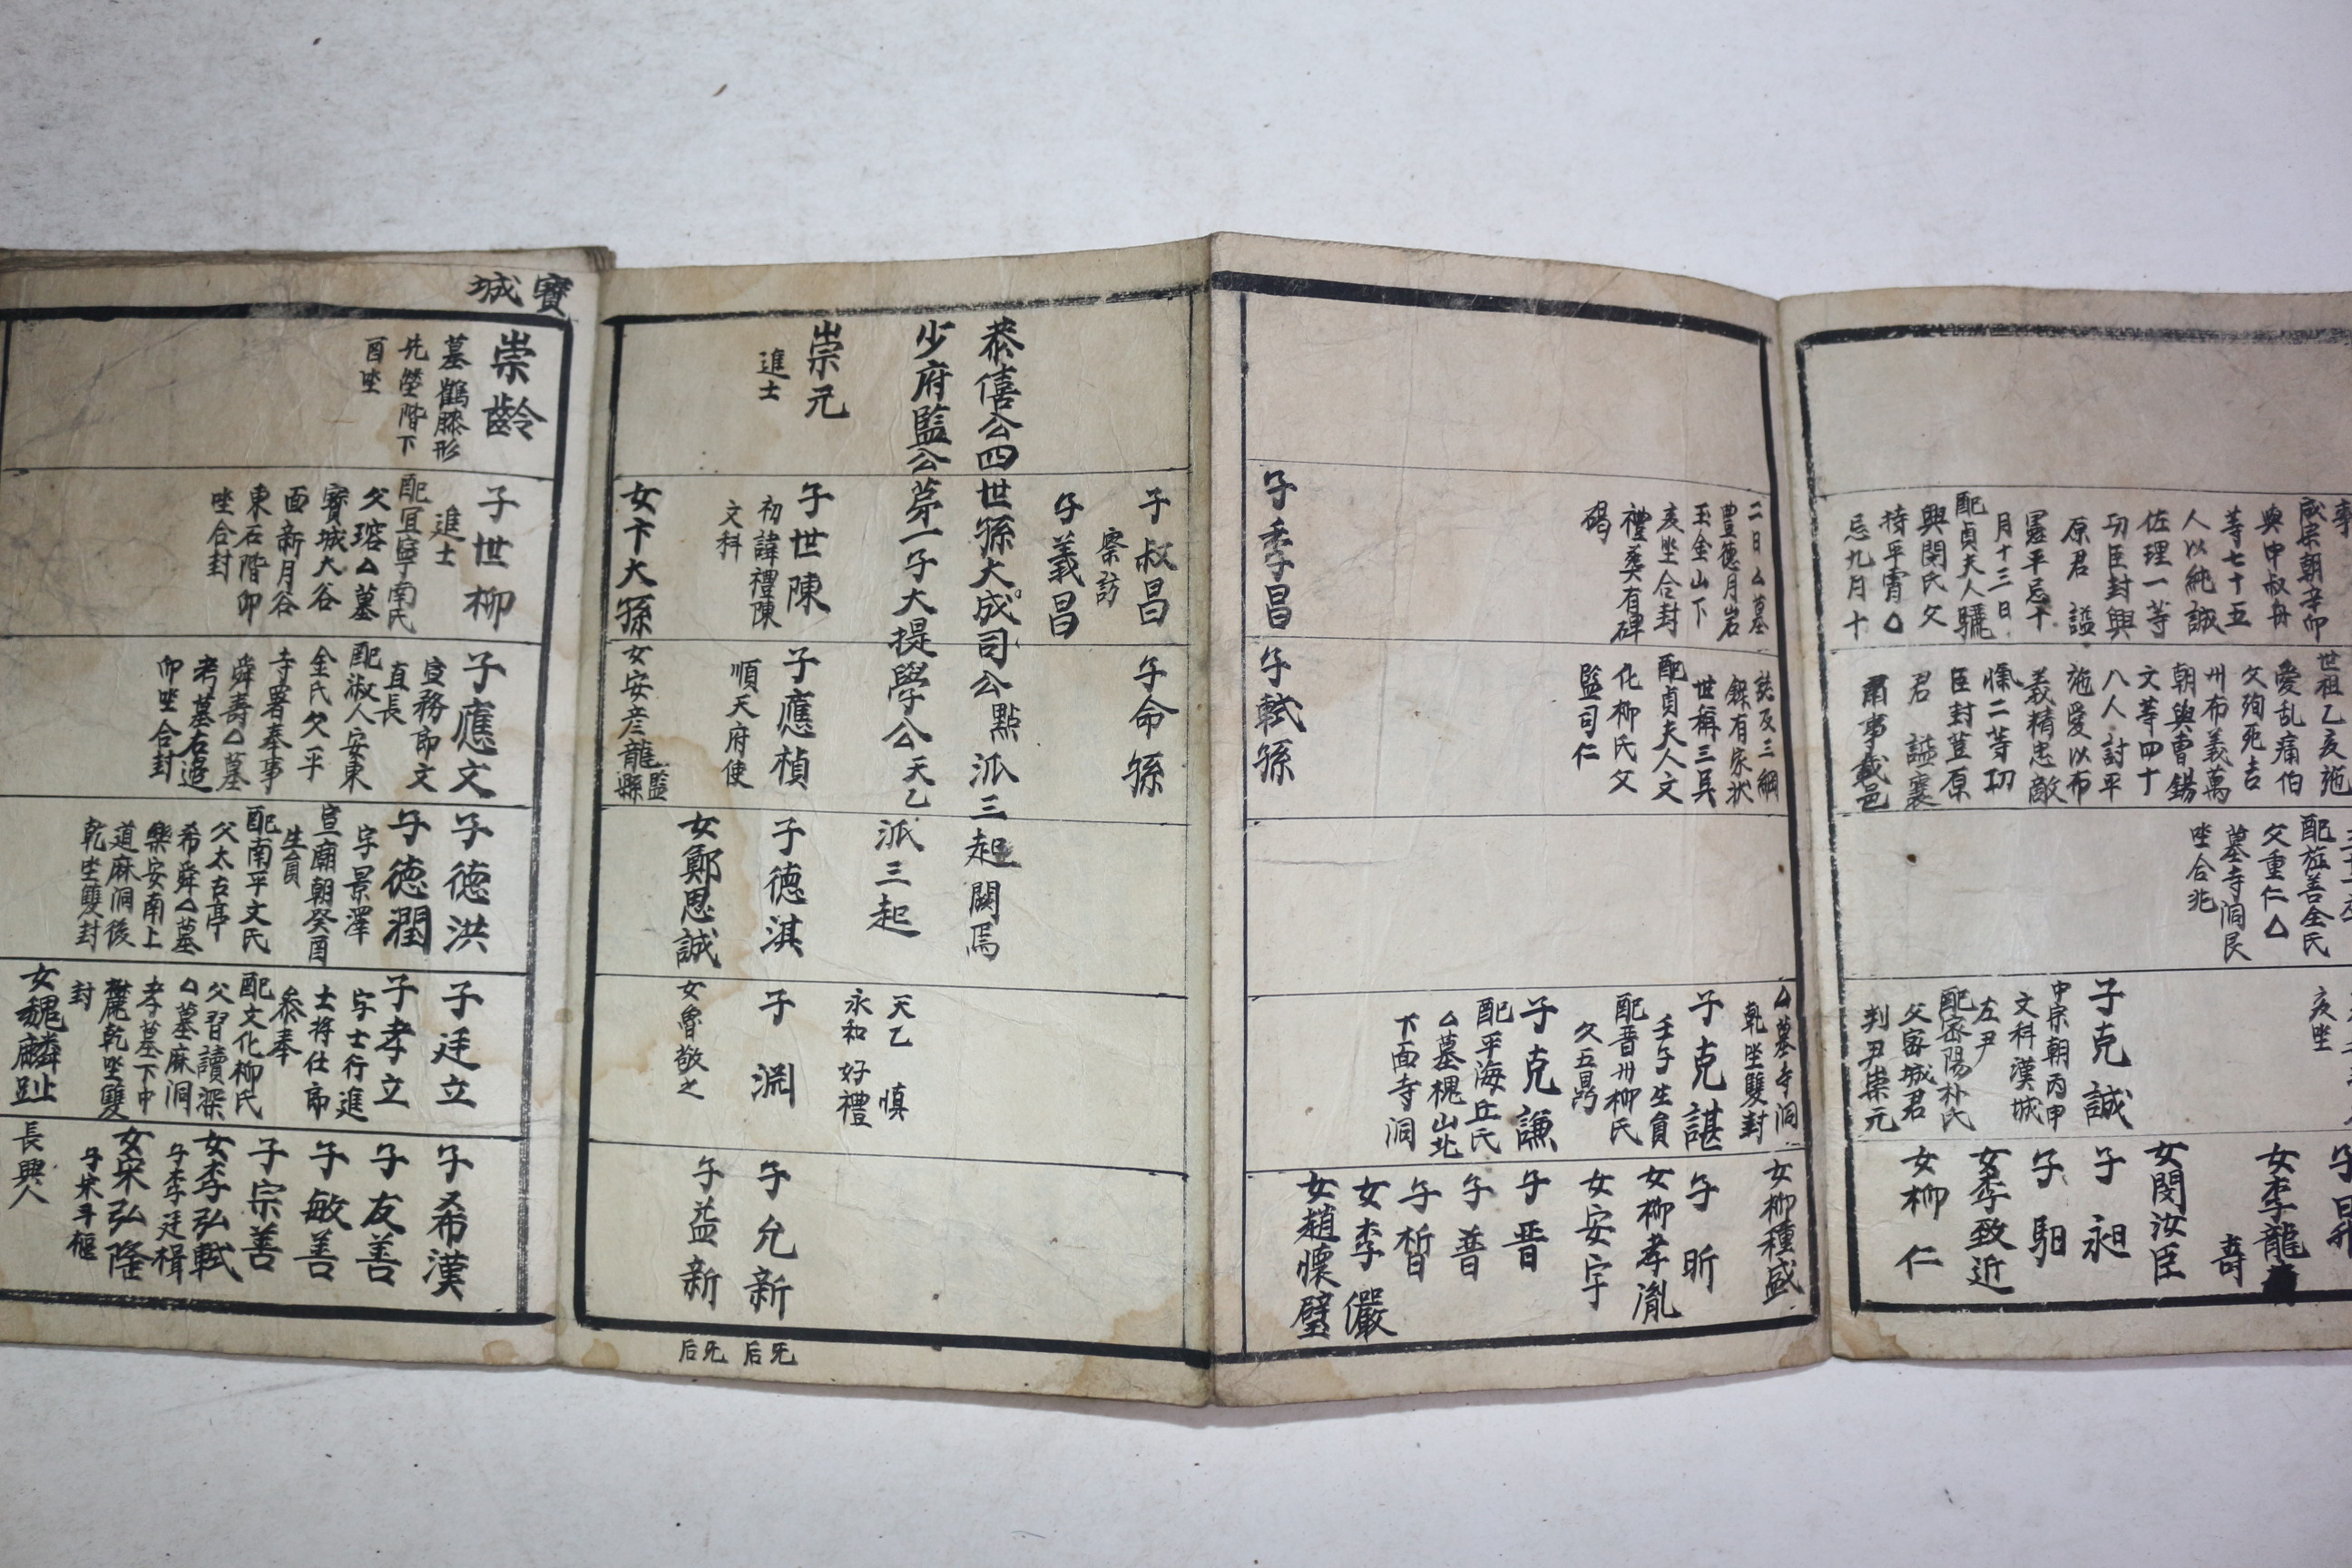 獻宗朝辛卯
與申叔舟
等七十五
人以純誠
佐理一等
功臣封興
原君 謚
罢平忌十
月十三日
配貞夫人驪
興閔氏父
持平霄△
忌九月十
世祖乙亥施
愛乱痛伯
父殉死吉
州布義萬
朝與曺錫
文等四十
八人討平
施愛以布
義精忠敵
愾二等功
臣封荳原
君 謚襄
肅事載邑
配㫌善全氏
父重仁△
墓寺洞艮
坐合兆
亥坐
子克誠
中宗朝丙申
文科漢城
左尹
配密陽朴氏
父密城君
判尹崇元
女李龍壽
女閔汝臣
子昶
子駰
女李致近
女柳仁
二日△墓
豊德月岩
玉金山下
亥坐合封
禮葬有碑
碣
子季昌
誌及三綱
錄有家狀
世稱三吳
配貞夫人文
化柳氏父
監司仁
子軾孫
△墓寺洞
乾坐雙封
子克諶
壬午生員
配晋州柳氏
父五昺
子克謙
配平海丘氏
△墓槐山北
下面寺洞
女柳種盛
子昕
女柳孝胤
女安宇
子晋
子普
子晳
女李儼
女趙懷璧
子叔昌
察訪
子義昌
子命孫
恭僖公四世孫大成司公點派三起闕焉
少府監公第一子大提學公天乙派三起
崇元
進士
子世陳
初諱禮陳
文科
女卞大孫
子應楨
順天府使
女安彦龍縣監
子德淇
女鄭思誠
天乙 慎
永和 好禮
子淵
女魯敬之
子允新
子益新
无后 无后
寶城
崇齡
墓鶴膝形
先塋階下
酉坐
子世柳
進士
配宜寧南氏
父瑢△墓
寶城大谷
面新月谷
東石階卯
坐合封
子應文
宣務郎文
直長
配淑人安東
金氏父平
寺署奉事
舜壽△墓
考墓右邊
卯坐合封
子德洪
子德潤
字景澤
宣廟朝癸酉
生員
配南平文氏
父太古亭
希舜△墓
樂安南上
道麻洞後
乾坐雙封
子廷立
子孝立
字士行進
士将仕郎
叅奉
配文化柳氏
父習讀深
△墓麻洞
孝墓下中
麓乾坐雙
封
女魏麟趾
子希漢
子友善
子敏善
子宗善
女李弘軾
子李廷楫
女宋弘隆
子宋斗樞
長興人